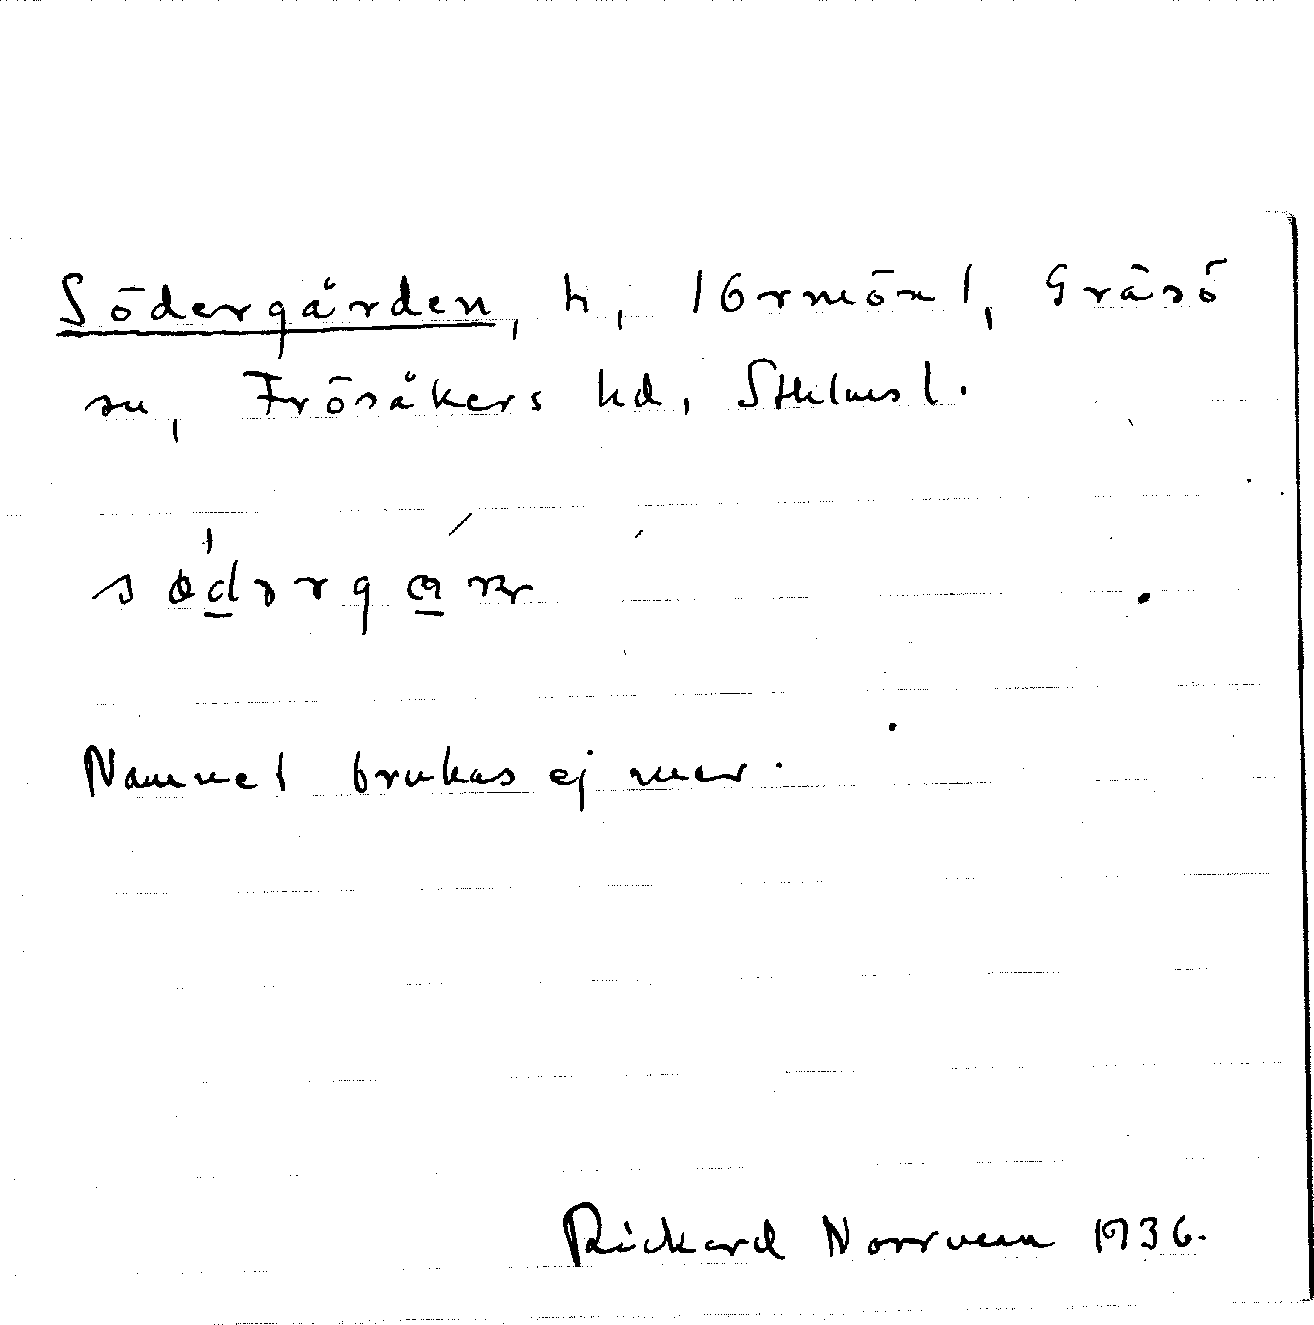 Södergården, h, /Örmön/, Gräsö
sn, Frösåkers hd, Sthlms l.
Namnet brukas ej mer.
Rickard Norrven 1936.